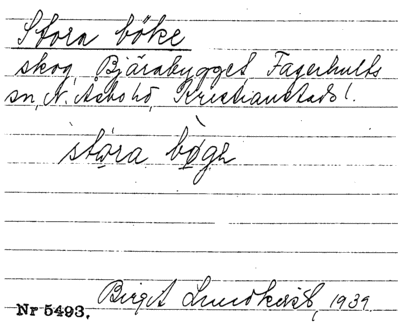 Stora böke
skog, Bjärabygget Fagerhults
sn, N. Åsbo hd, Kristianstads l.
stóra bø̀gə
Birgit Lundkvist, 1939
Nr 5493.